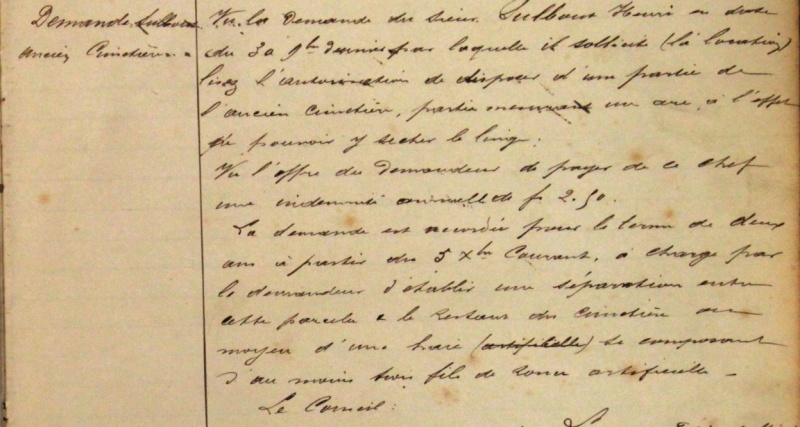 Demande Sulbout
ancien Cimetière. -
Vu la demande du sieur Sulbout Henri en date
du 30 9bre dernier par laquelle il sollicite (la location)
lisez l'autorisation de disposer d'une partie de
l'ancien cimetière, partie mesurant un are, à l'effet
de pouvoir y secher le linge.
Vu l'offre du demandeur de payer de ce chef
une indemnité annuelle de fr 2.50.
La demande est accordée pour le terme de deux
ans à partir du 5 Xbre courant, à charge par
le demandeur d'établir une séparation entre
cette parcelle & le restant du cimetière au
moyen d'une haie (artificielle) se composant
d'au moins trois fils de ronce artificielle -
Le Conseil: